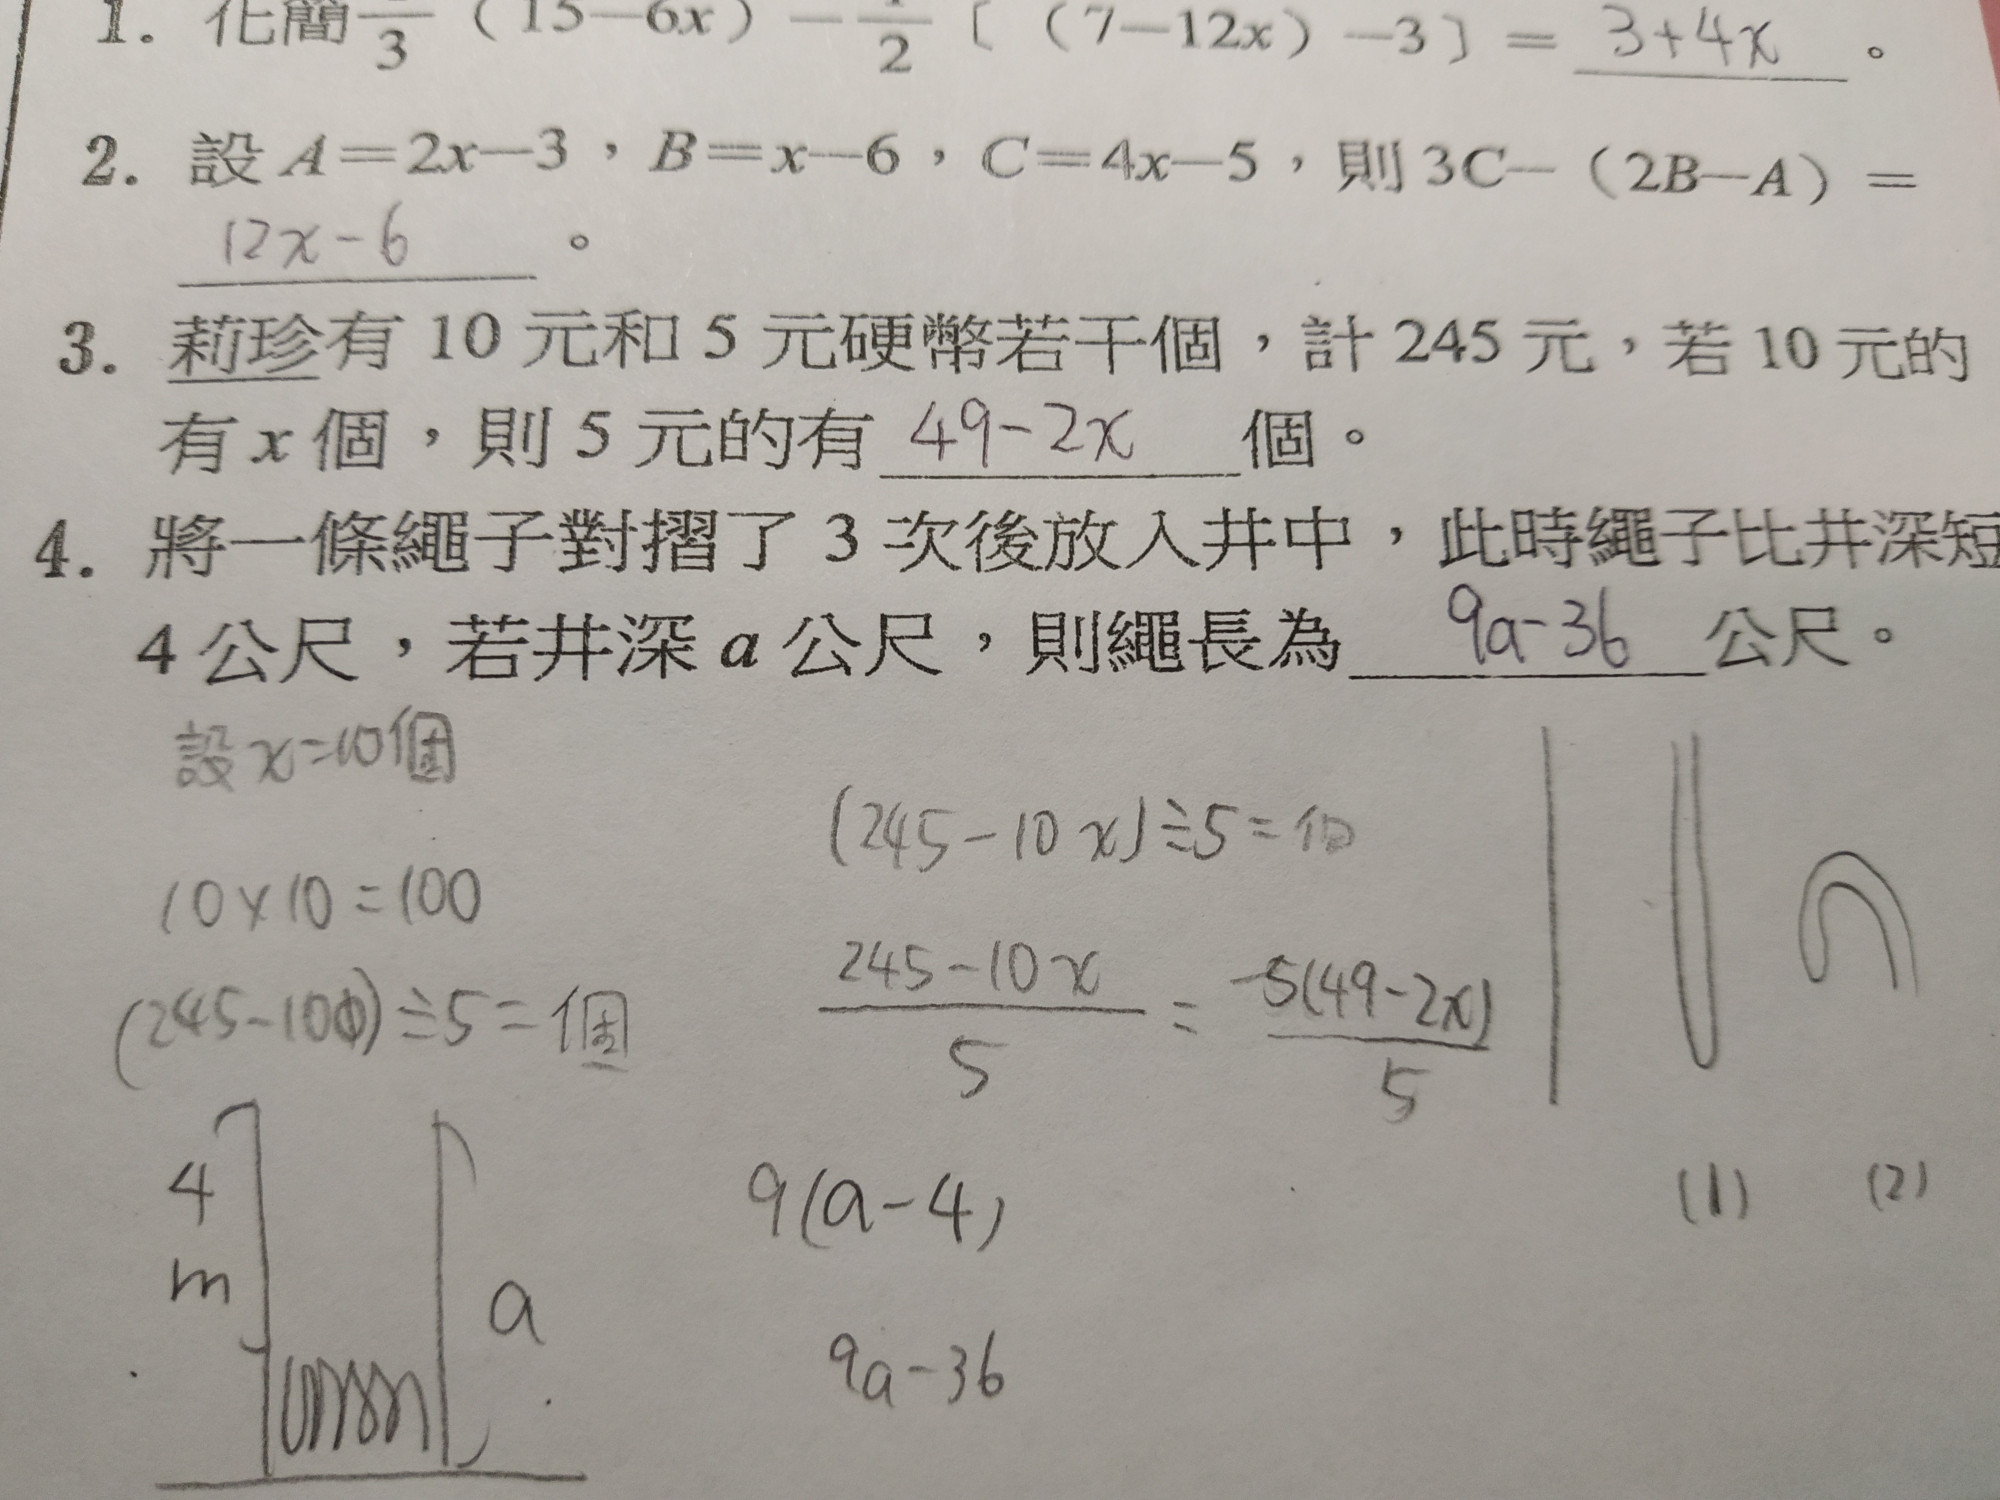 1. 化簡 /3（15—6x）— /2〔（7—12x）—3〕= 3+4x 。
2. 設 A＝2x—3，B＝x—6，C＝4x—5，則 3C—（2B—A）＝
12x-6 。
3. 莉珍有 10 元和 5 元硬幣若干個，計 245 元，若 10 元的
有 x 個，則 5 元的有 49-2x 個。
4. 將一條繩子對摺了 3 次後放入井中，此時繩子比井深短
4 公尺，若井深 a 公尺，則繩長為 9a-36 公尺。
設 x=10個
10×10=100
(245-100)÷5=個
(245-10x)÷5=
245-10x
5
=
-5(49-2x)
5
(1) (2)
4
m
a
9(a-4)
9a-36